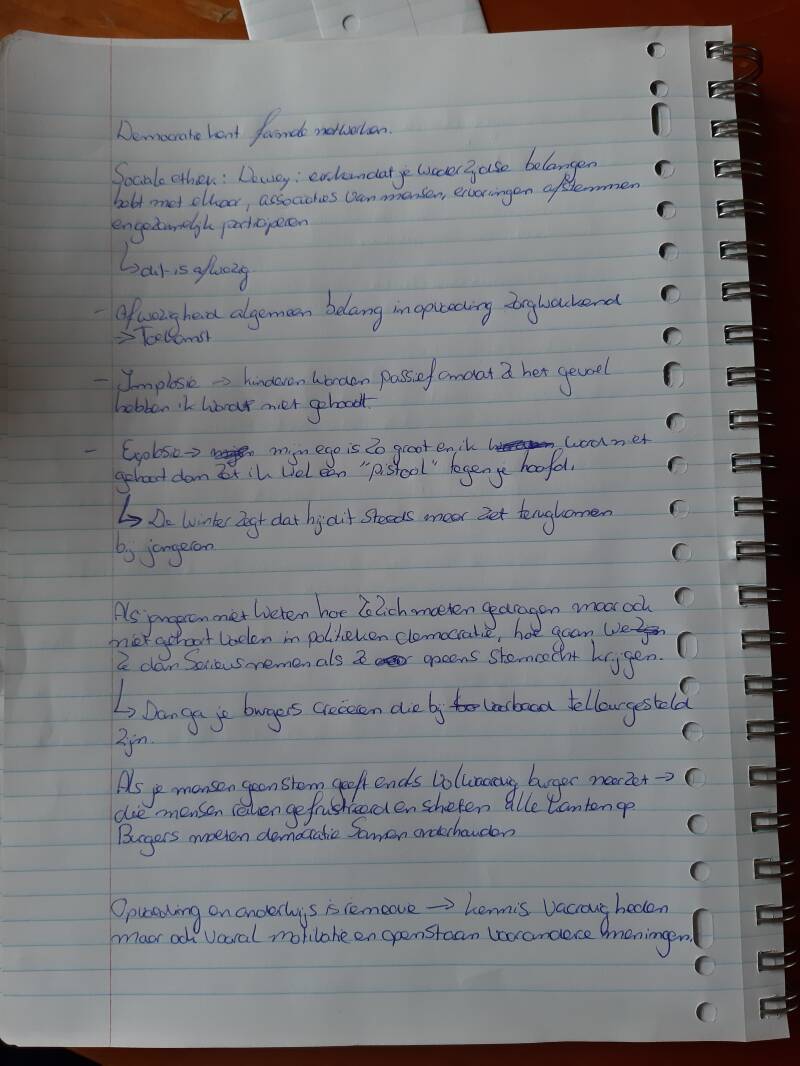 Democratie kent formele netwerken.
Sociale ethiek: Dewey: erken dat je wederzijdse belangen
hebt met elkaar, associaties van mensen, ervaringen afstemmen
en gezamelijk participeren
↳ dit is afwezig
- Afwezigheid algemeen belang in opvoeding zorgwekkend
→ Toekomst
- Implosie → kinderen worden passief omdat ze het gevoel
hebben ik wordt niet gehoord.
- Explosie → mijn ego is zo groot en ik word niet
gehoord dan zet ik wel een "pistool" tegen je hoofd.
↳ De Winter zegt dat hij dit steeds meer ziet terugkomen
bij jongeren
Als jongeren niet weten hoe ze zich moeten gedragen maar ook
niet gehoord worden in politieken democratie, hoe gaan we
ze dan serieus nemen als ze opeens stemrecht krijgen.
↳ Dan ga je burgers creëeren die bij voorbaad telleurgesteld
zijn.
Als je mensen geen stem geeft en als volwaardig burger neerzet →
die mensen raken gefrustreerd en schieten alle kanten op
Burgers moeten democratie samen onderhouden
Opvoeding en onderwijs is → kennis vaardigheden
maar ook vooral motivatie en openstaan voor andere meningen.